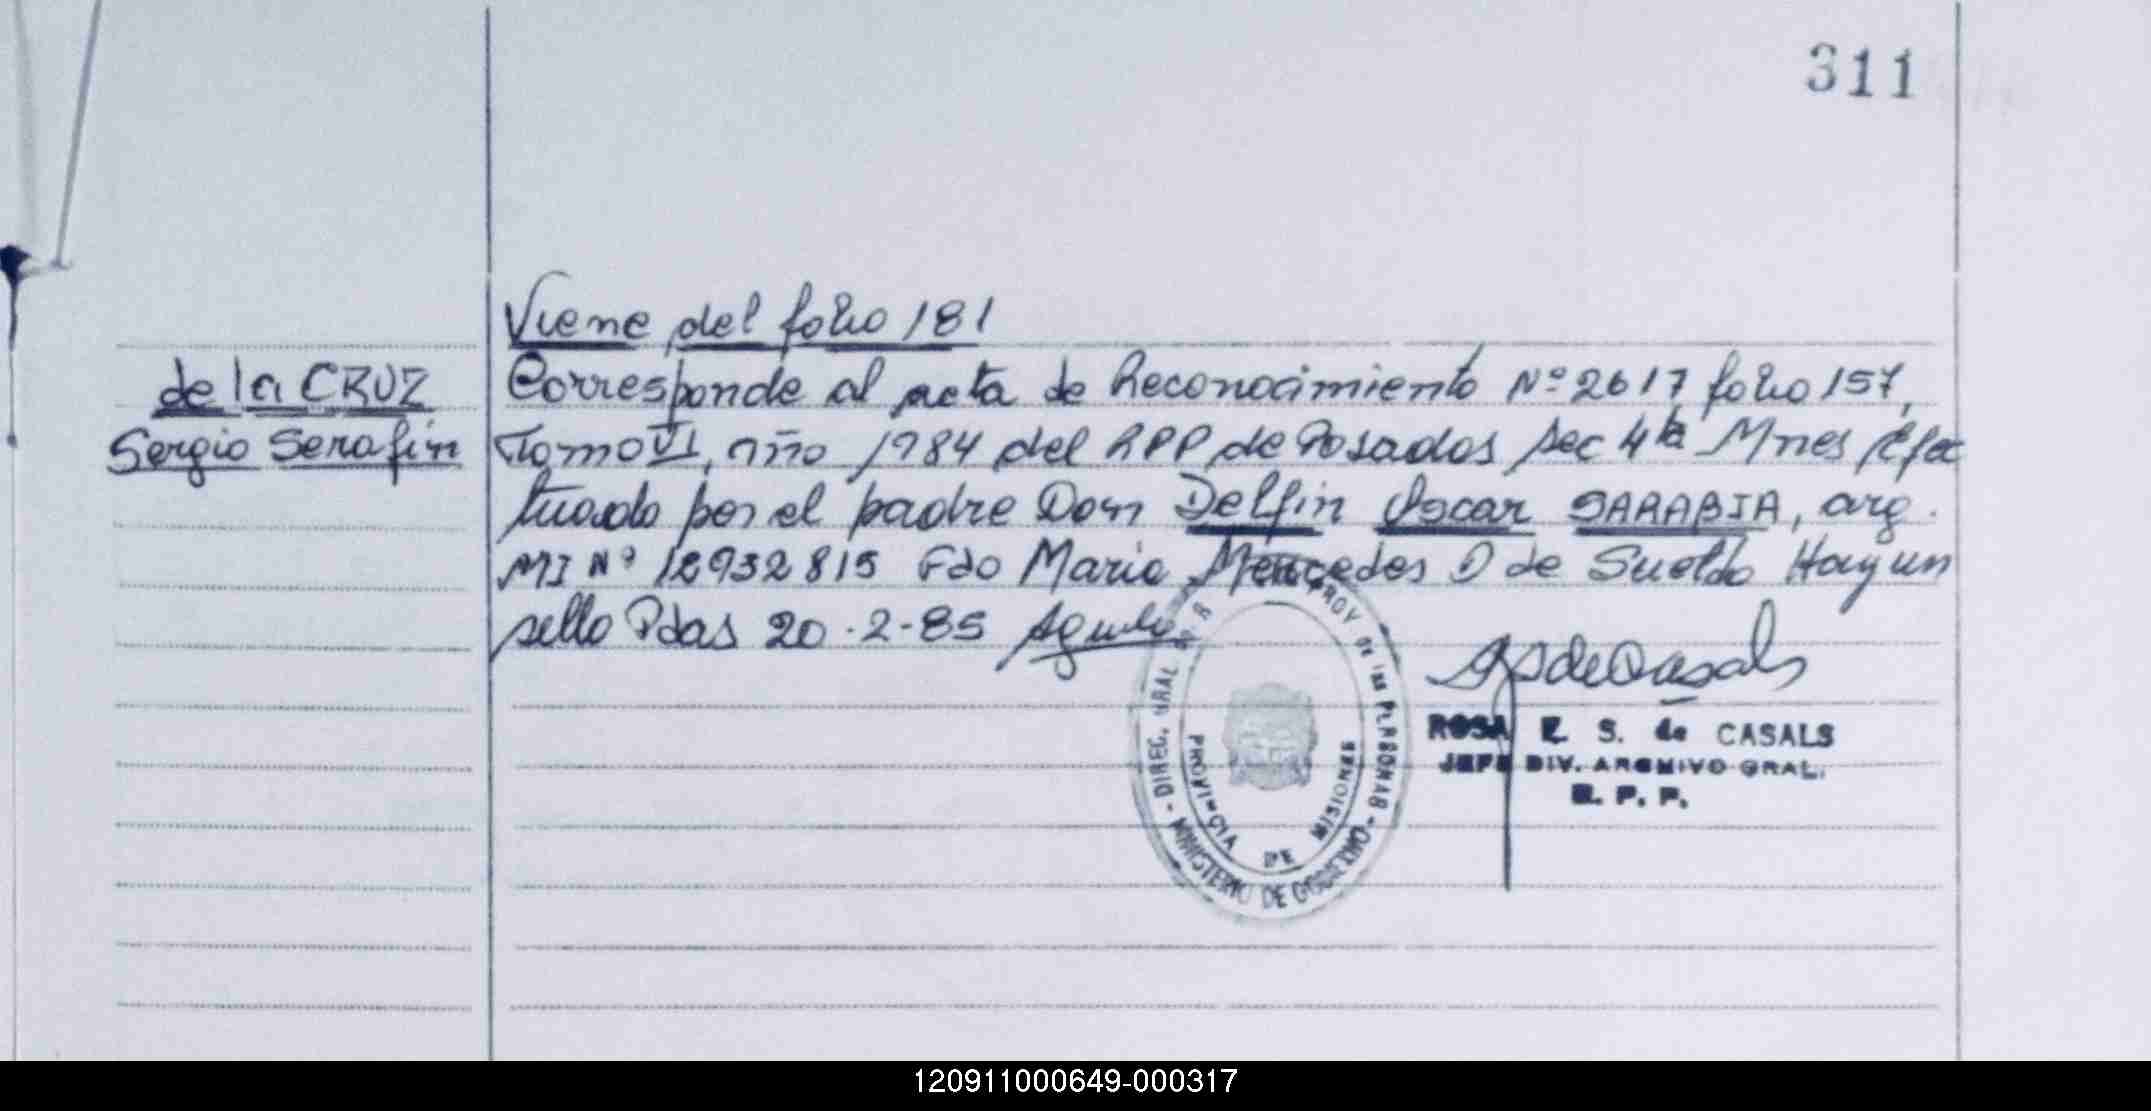 311
Viene del folio 181
de la CRUZ
Sergio Serafin
Corresponde al acta de Reconocimiento Nº 2617 folio 157,
Tomo VI, año 1984 del RPP de Posadas sec 4ta Mnes Efec
tuado por el padre Don Delfin Oscar SARABIA, arg.
MI Nº 12932815 Fdo Maria Mercedes D de Sueldo Hay un
sello Pdas 20-2-85
DIREC. GRAL DE R PROV DE LAS PERSONAS
PROVINCIA DE MISIONES
MINISTERIO DE GOBIERNO
ROSA E. S. de CASALS
JEFE DIV. ARCHIVO GRAL.
R. P. P.
120911000649-000317